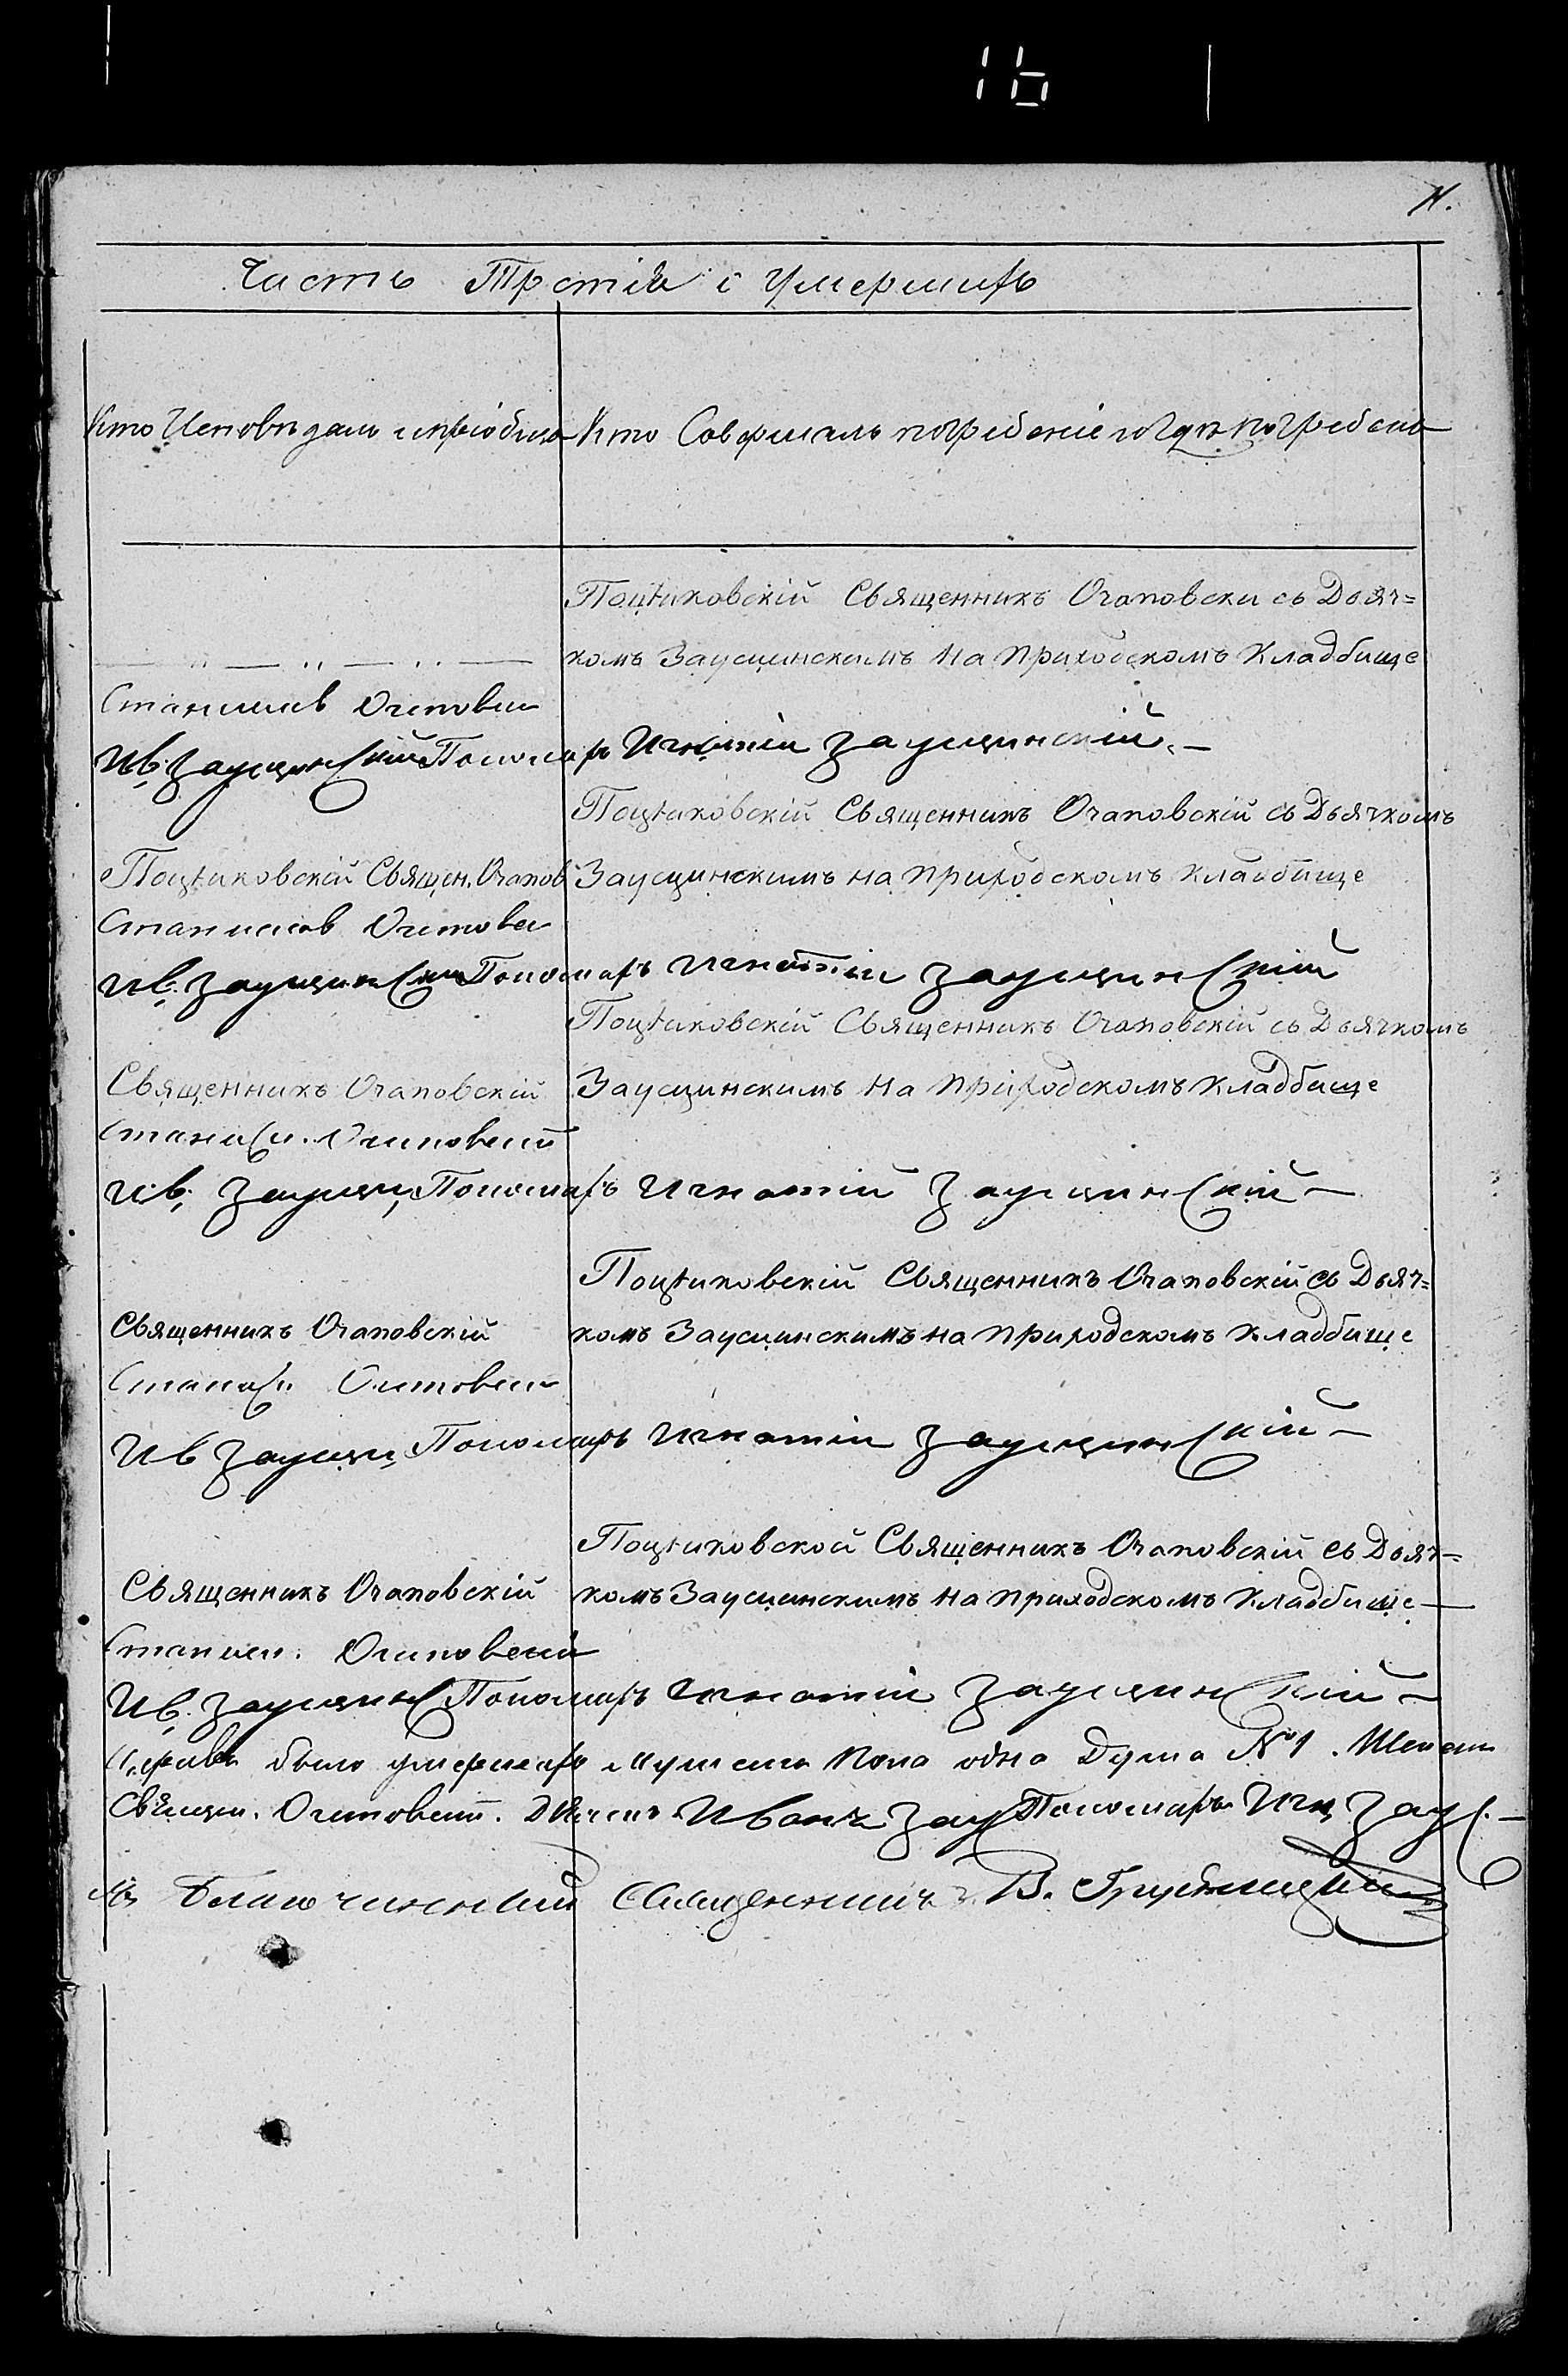 16
11.
Часть Третія о Умершихъ
Кто Исповѣдалъ и пріобщалъ
Кто Совершалъ погребеніе и гдѣ погребенъ
Поцѣиковскій Священникъ Очаповски съ Дьяч=
комъ Заусцинскимъ на приходскомъ Кладбище
— „ — „ — „ —
Станислав Очаповски
Ив. Заусцинскій Пономарь Игнатій Заусцинскій. —
Поцѣиковскій Священникъ Очаповскій съ Дьячкомъ
Поцѣиковскій Священ. Очапов
Заусцинскимъ на приходскомъ кладбище
Станислав Очаповски
Ив. Заусцинский Пономарь Игнатій Заусцинскій
Поцѣиковскій Священникъ Очаповскій съ Дьячкомъ
Священникъ Очаповскій
Заусцинскимъ на приходскомъ кладбище
Станисл. Очаповский
Ив. Заусци, Пономарь Игнатій Заусцинскій —
Поцѣиковскій Священникъ Очаповскій съ Дьяч=
Священникъ Очаповскій
комъ Заусцинскимъ на приходскомъ кладбище
Станисл Очаповски
Ив Заусци, Пономарь Игнатій Заусцинскій —
Поцѣиковской Священникъ Очаповскій съ Дьяч=
Священникъ Очаповскій
комъ Заусцинскимъ на приходскомъ кладбище —
Станисл. Очаповский
Ив. Заусцинс Пономарь Игнатій Заусцинскій —
было умершихъ мужеска пола одна Душа № 1.
Священ. Очаповский. Дьячекъ Иванъ Заус Пономарь Игн Заус. —
Благочинный Священникъ В.